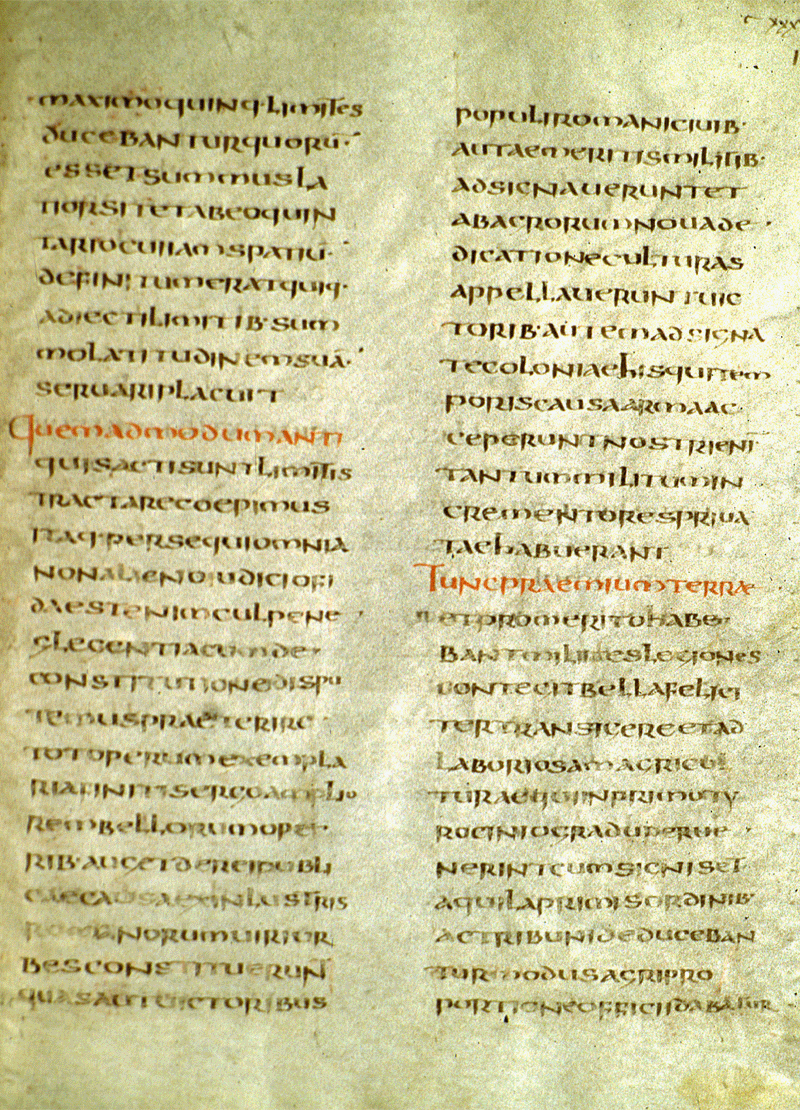 maximoquinq·limites
ducebanturquoru·
essetsummusla
tiorsitetabeoquin
spatiu·
definitumeratquiq·
adiectilimitib·sum
molatitudinemsua·
servariplacuit
quemadmodumanti
quisactisuntlimitis
tractarecoepimus
itaq·persequiomnia
non iudicio
daestenimculpene
glegentia
constitutionedispu
temuspraeterire
totoperumexempla
rembellorumope
rib·augetdereipubli
norumviri
besconstituerun
quasautvictoribus
populiromanicivib·
autaemeritismilitib·
adsignaveruntet
abagrorumnovade·
dicationeculturas
appellaveruntvic
torib·autemadsigna
tecoloniaehisquitem
poriscausaarmaac·
ceperuntnostrieni
tantummilitumin
crementorespriva
taehabuerant
tuncpraemiumterrae
etpromeritohabe·
bantmiliteslegiones
contegitbellafelici
tertransigereetad
laboriosamagricul
turae inprimoty
rociniograduperve·
nerintcumsigniset
aquilaprimisordinib·
actribunideduceban
turmodusagripro
portioneofficiidabatur